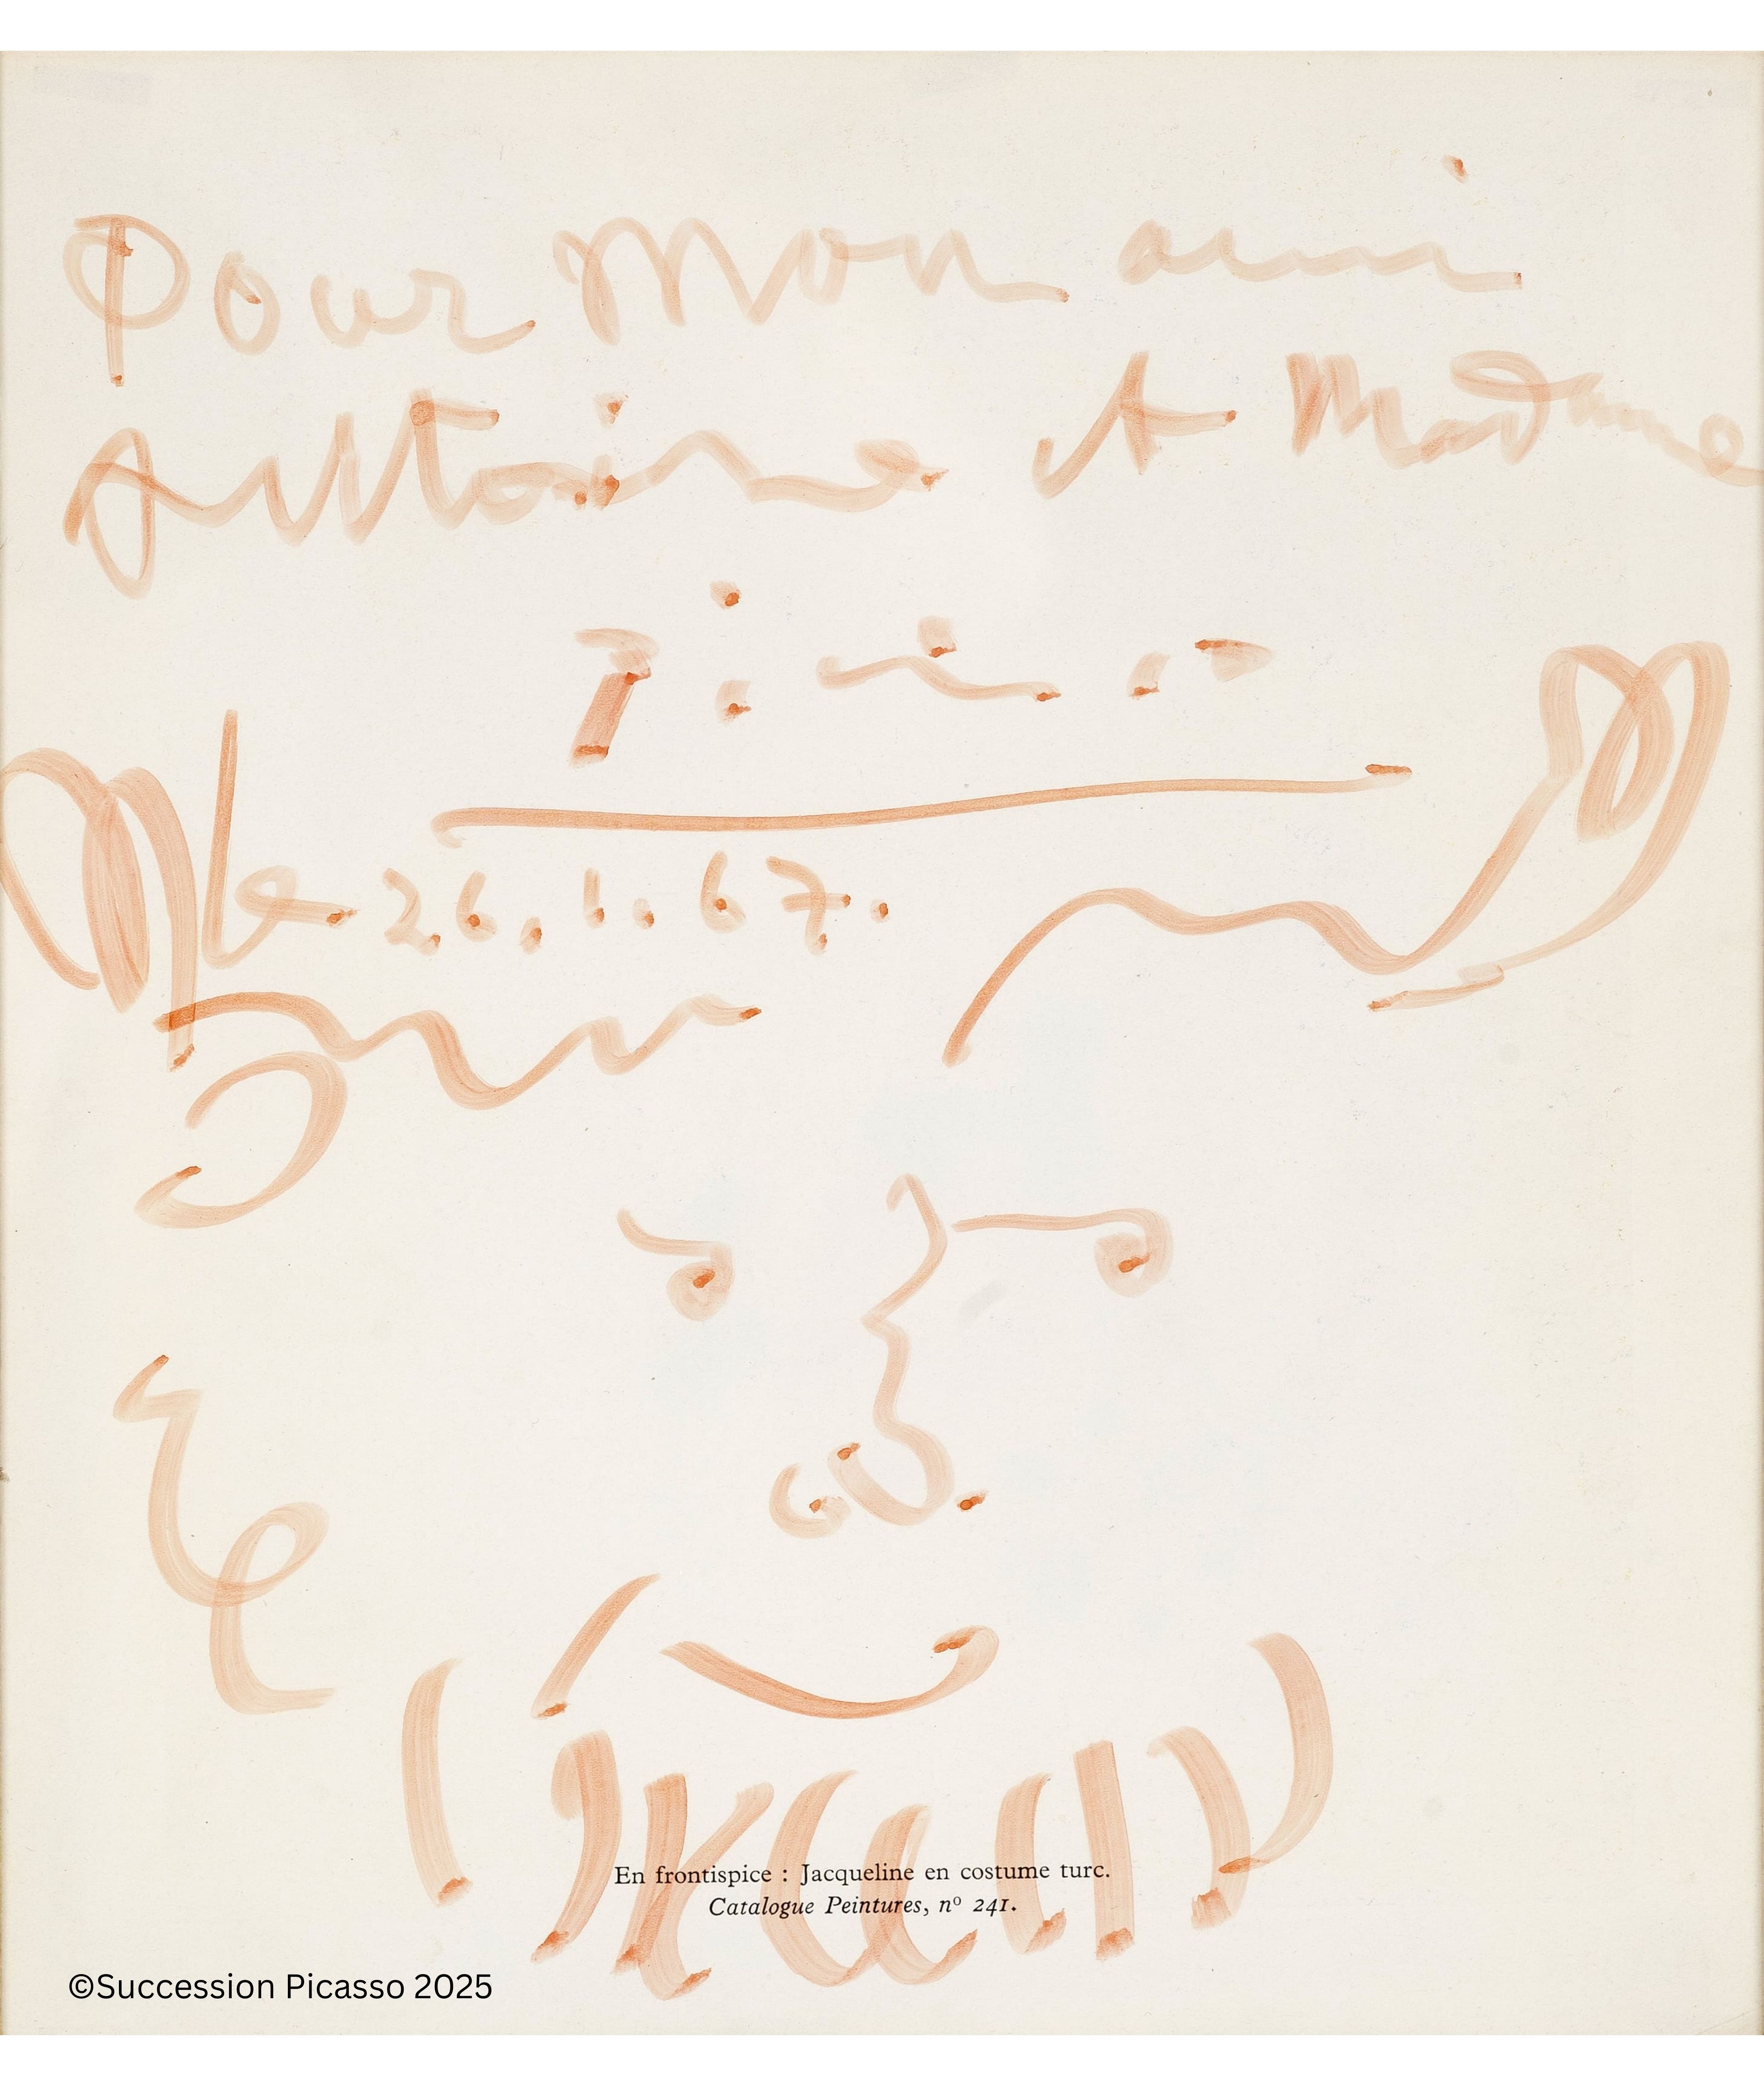 Pour Mon ami
Antoine et Madame
le 26.1.67.
En frontispice : Jacqueline en costume turc.
Catalogue Peintures, nº 241.
©Succession Picasso 2025